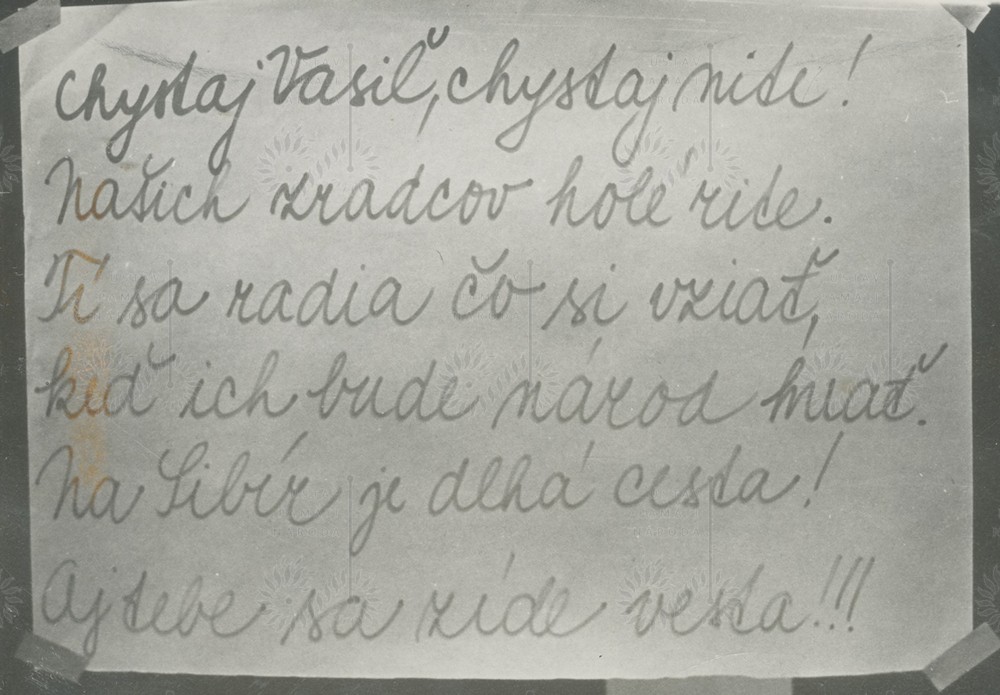 Chystaj Vasiľ, chystaj nite!
Našich zradcov holé rite.
Tí sa radia čo si vziať,
keď ich bude národ hnať.
Na Sibír je dlhá cesta!
Aj tebe sa zíde vesta!!!